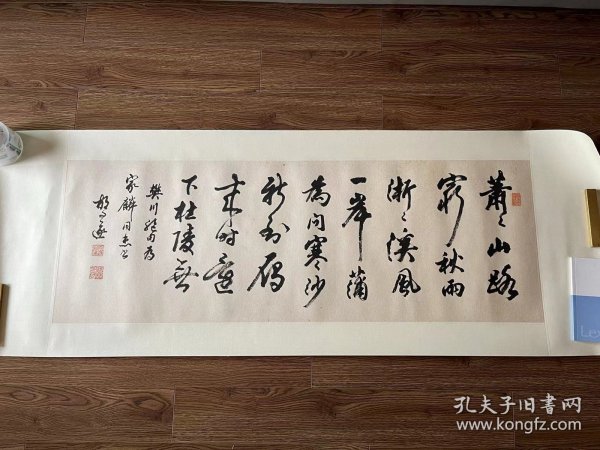 蕭〻山路
窮秋雨
淅〻溪風
一岸蒲
為问寒沙
新到雁
来时還
下杜陵無
樊川絶句為
家麟同志
胡问遂
孔夫子旧书网
www.kongfz.com